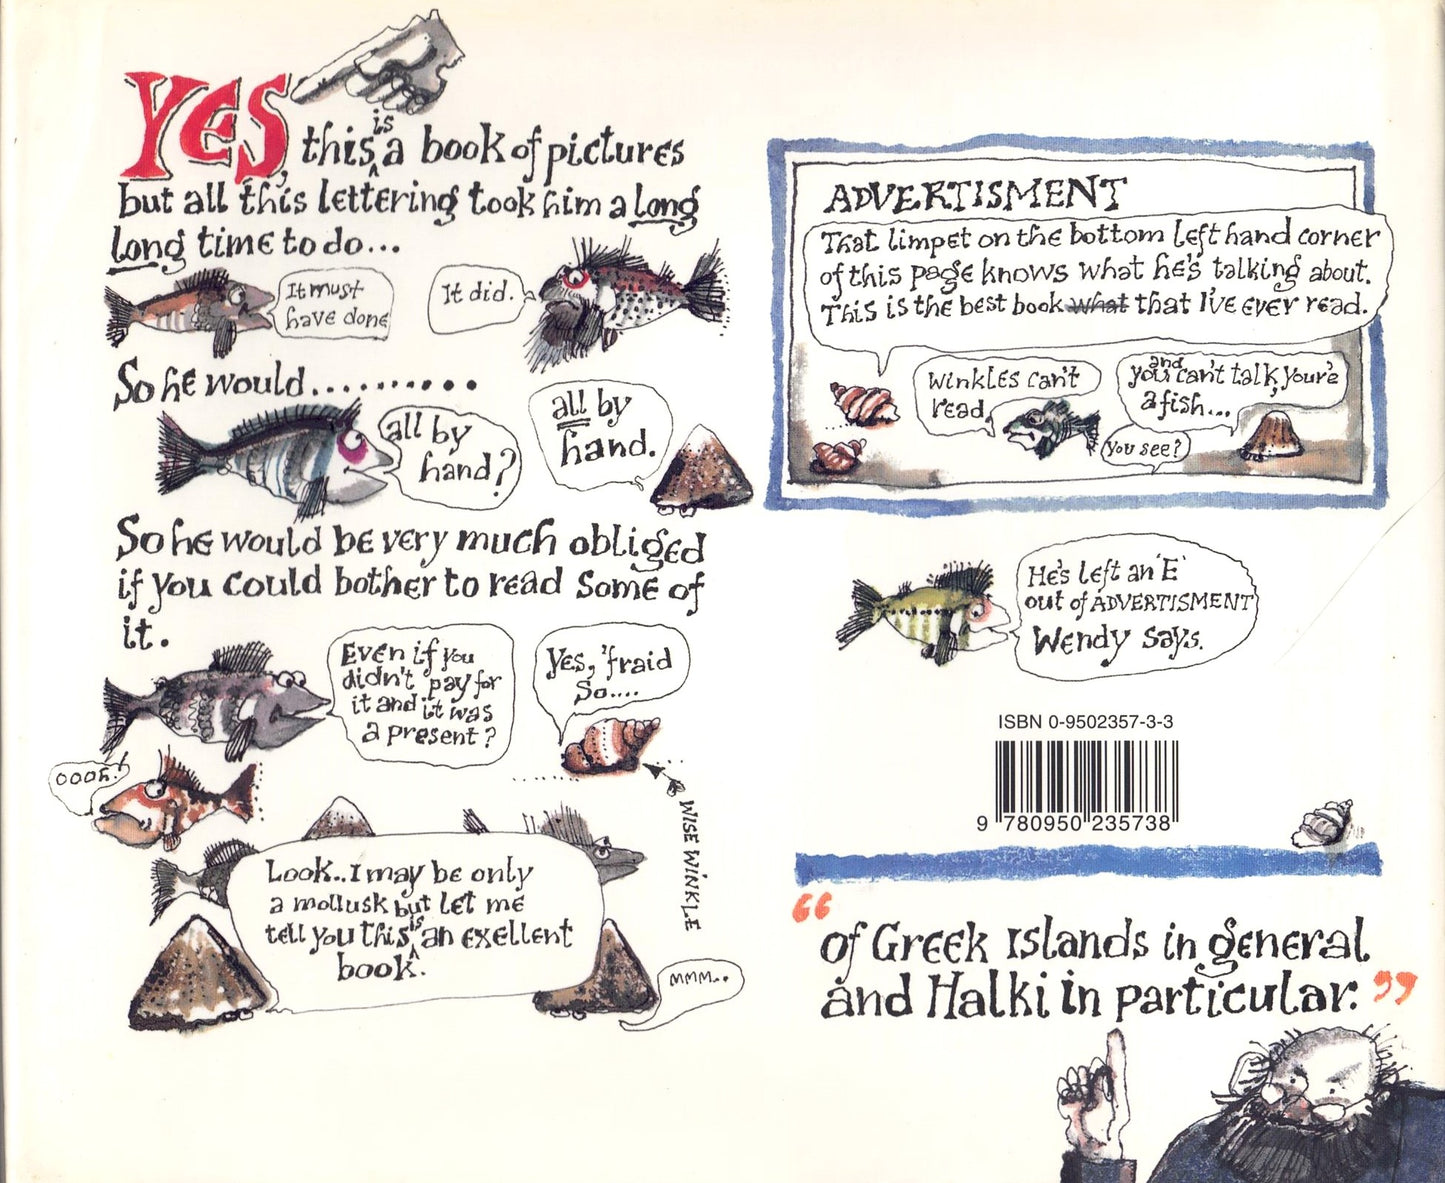 YES, this is a book of pictures
but all this lettering took him a long
long time to do...
It must
have done
It did.
So he would..........
all by
hand?
all by
hand.
So he would be very much obliged
if you could bother to read some of
it.
Even if you
didn't pay for
it and it was
a present?
Yes, 'fraid
So....
oooh!
WISE WINKLE
Look.. I may be only
a mollusk but let me
tell you this is an exellent
book.
mmm..
ADVERTISMENT
That limpet on the bottom left hand corner
of this page knows what he's talking about.
This is the best book what that I've ever read.
Winkles can't
read
and
you can't talk, your'e
a fish...
You see?
He's left an 'E'
out of ADVERTISMENT
Wendy says.
ISBN 0-9502357-3-3
9 780950 235738
“of Greek Islands in general
and Halki in particular.”